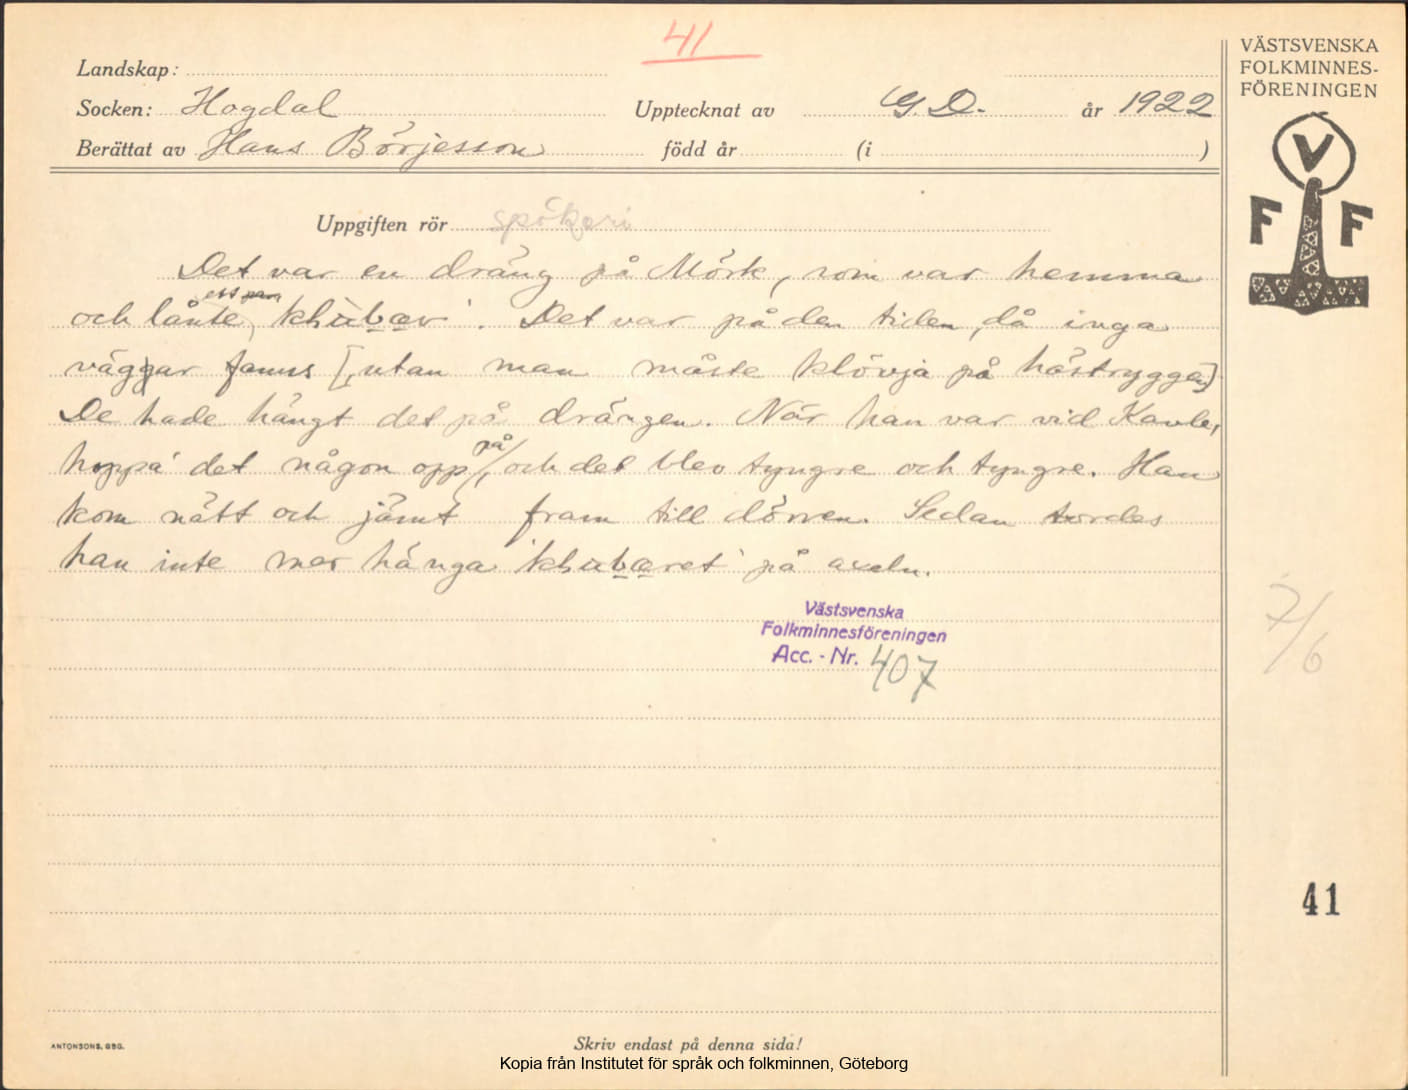 41
Landskap:
Socken: Hogdal Upptecknat av G. D. år 1922
Berättat av Hans Börjesson född år (i )
VÄSTSVENSKA
FOLKMINNES-
FÖRENINGEN
V
F F
Uppgiften rör spökeri
Det var en dräng på Mörk, som var hemma
ett par
och lånte klùbær. Det var på den tiden, då inga
väggar fanns [, utan man måste klövja på hästryggen]
De hade hängt det på drängen. När han var vid Kavle,
på
hoppá det någon opp, och det blev tyngre och tyngre. Han
kom nätt och jämt fram till dörren. Sedan tordes
han inte mer hänga 'klubæret' på axeln.
Västsvenska
Folkminnesföreningen
Acc. - Nr. 407
7/6
41
ANTONSONS, GBG.
Skriv endast på denna sida!
Kopia från Institutet för språk och folkminnen, Göteborg